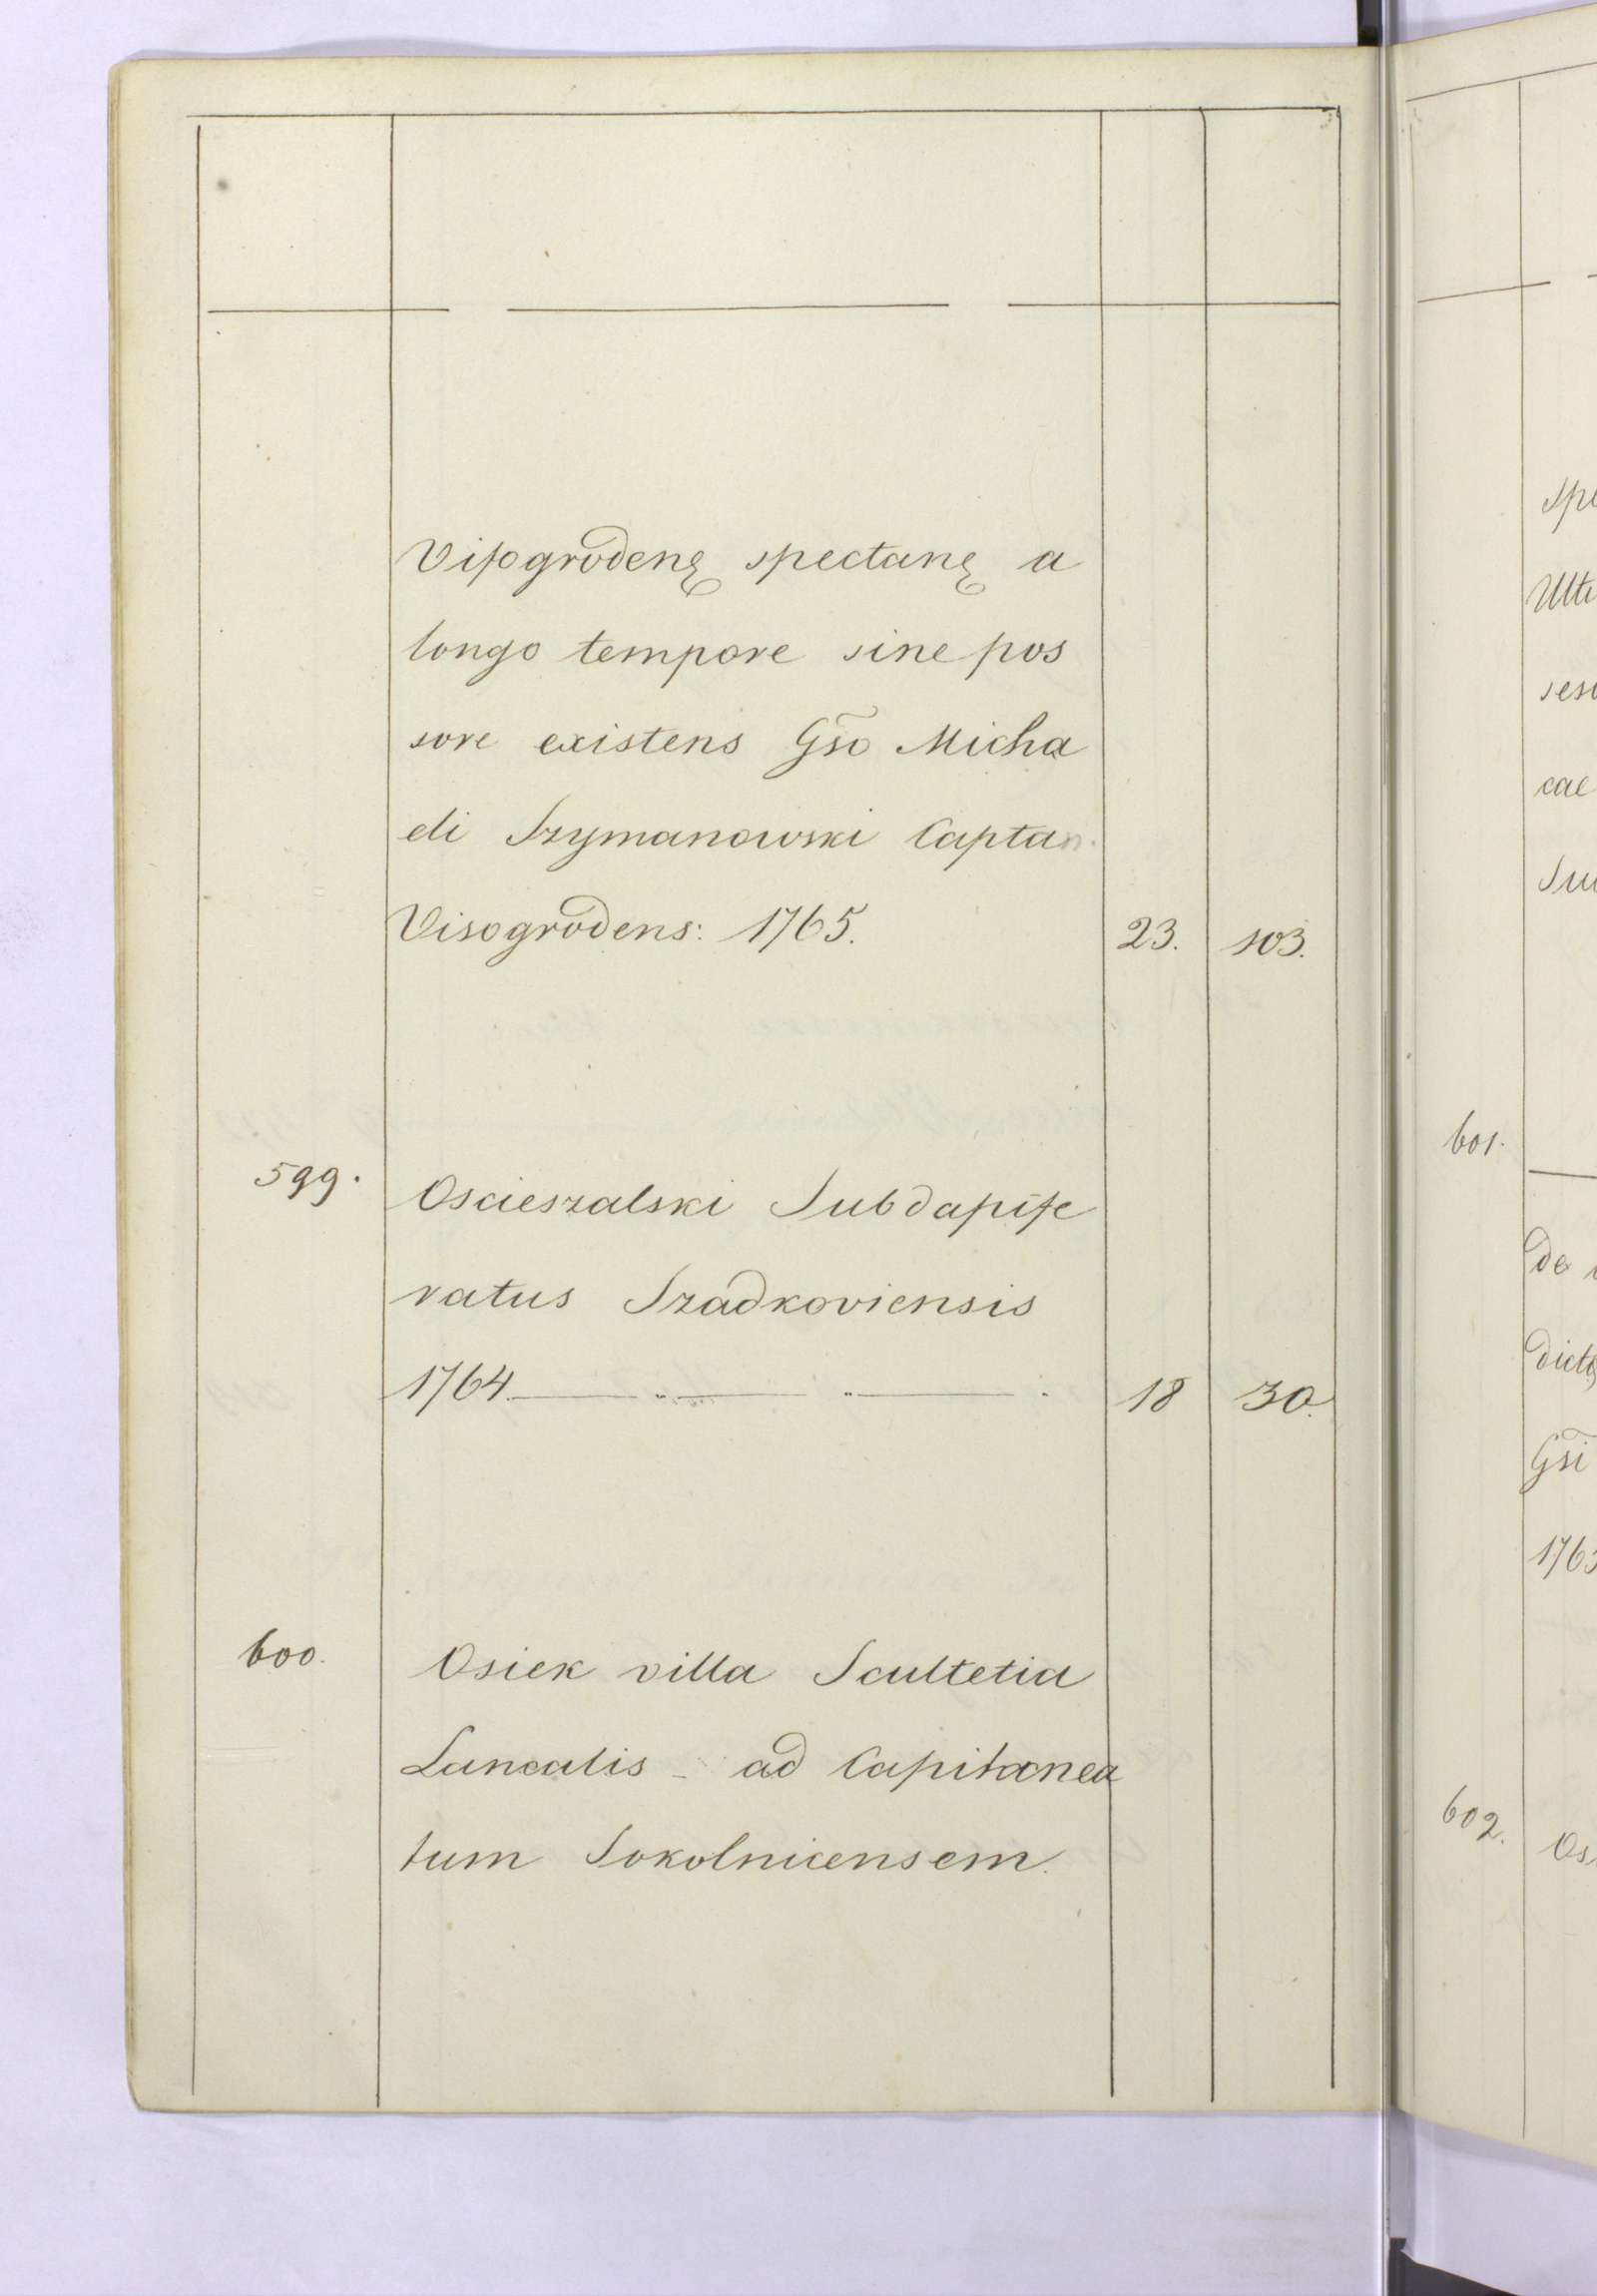 Visogrodenę spectanę a
longo tempore sine pos
sore existens Gso Micha
eli Szymanowski Captan.
Visogrodens: 1765. 23. 103.
599. Oscieszalski Subdapife
ratus Szadkoviensis
1764 18 30.
600. Osiek villa Scultetia
Lanealis - ad Capitanea
tum Sokolnicensem.
spe
Ulti
cae
601.
De
dictę
Gsi
176
602. Os